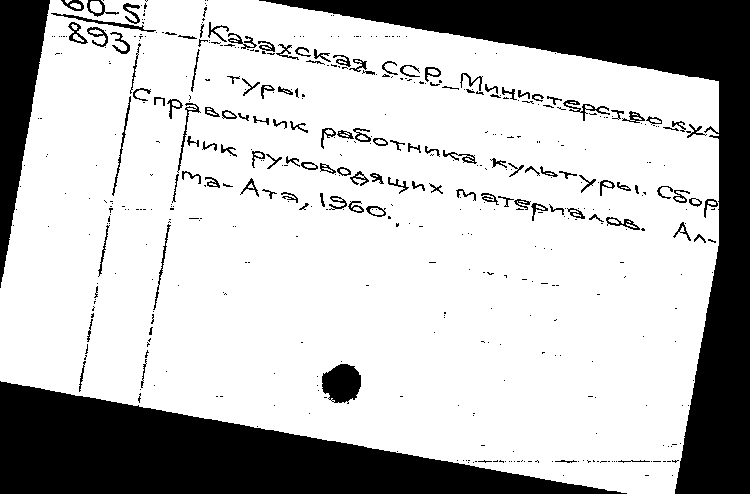 60-5
893
Казахская ССР. Министерство куль
туры.
Справочник работника культуры. Сбор
ник руководящих материалов. Ал-
ма-Ата, 1960.